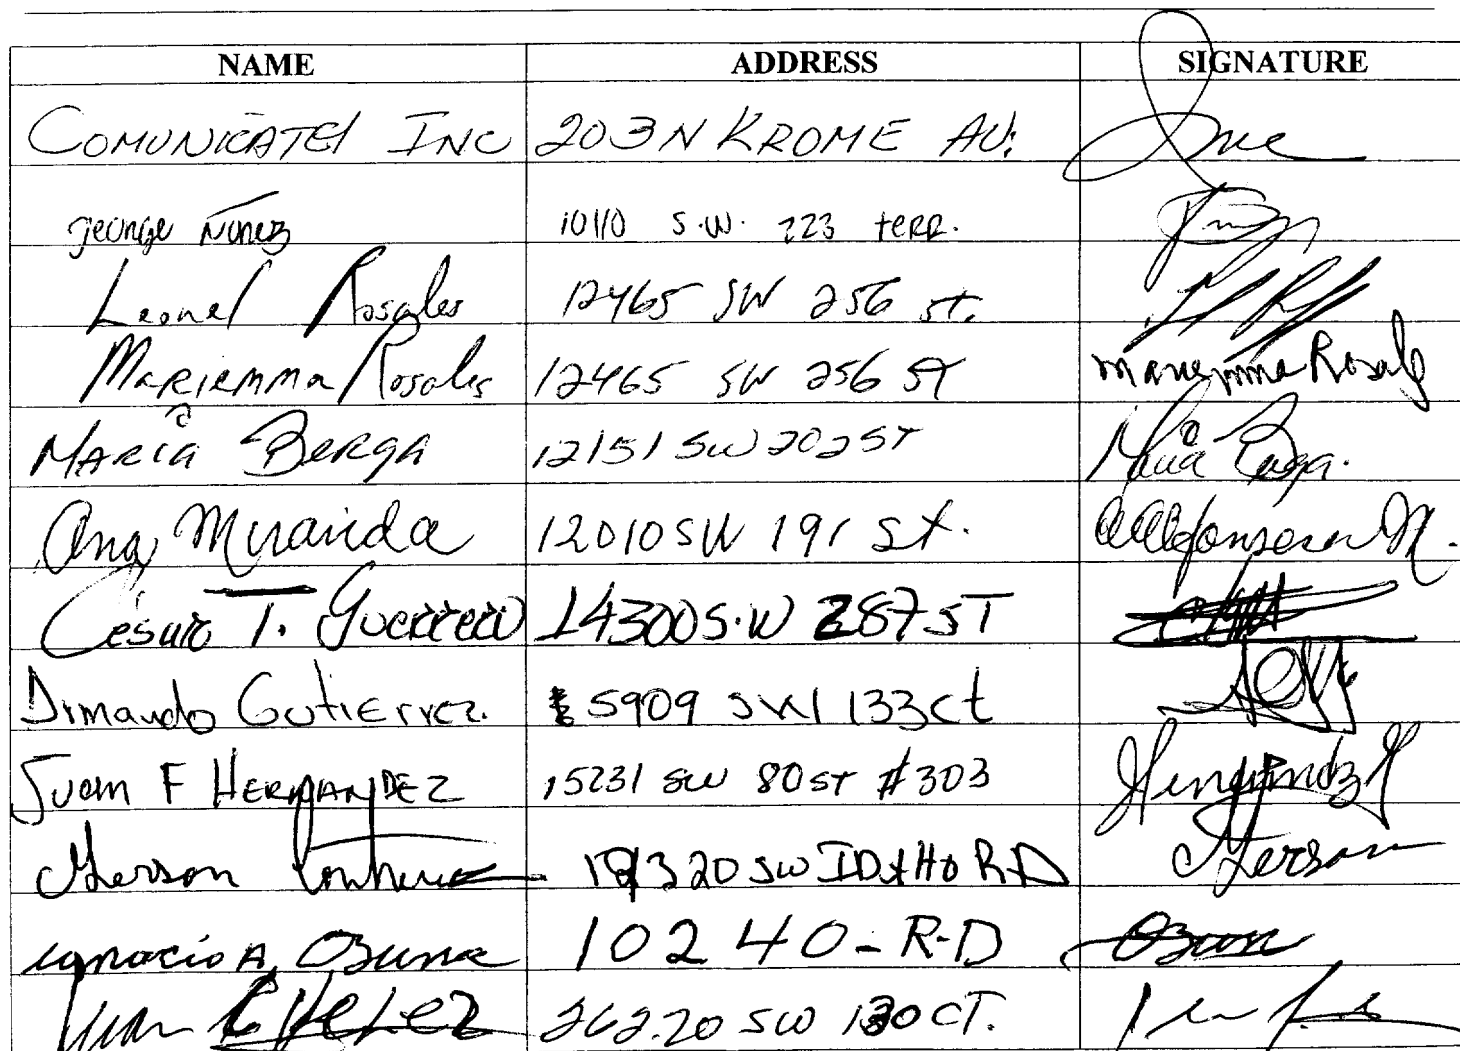 NAME ADDRESS SIGNATURE
COMUNICATEL INC 203 N KROME AV.
george Nunez 10110 S.W. 223 terr.
Leonel Rosales 12465 SW 256 st.
Mariemma Rosales 12465 SW 256 ST Mariemma Rosales
Maria Berga 12151 SW 202 ST Maria Berga.
Ana Miranda 12010 SW 191 St.
Cesar T. Guerrero 14300 S.W 287 ST
Gutierrez. 5909 SW 133 ct
Juan F HERNANDEZ 15231 SW 80 ST #303 Hernandez
Gerson SW IDAHO RD Gerson
ignacio A. Ozuna 10240 - R-D Ozuna
Juan 262.20 SW 130 CT.